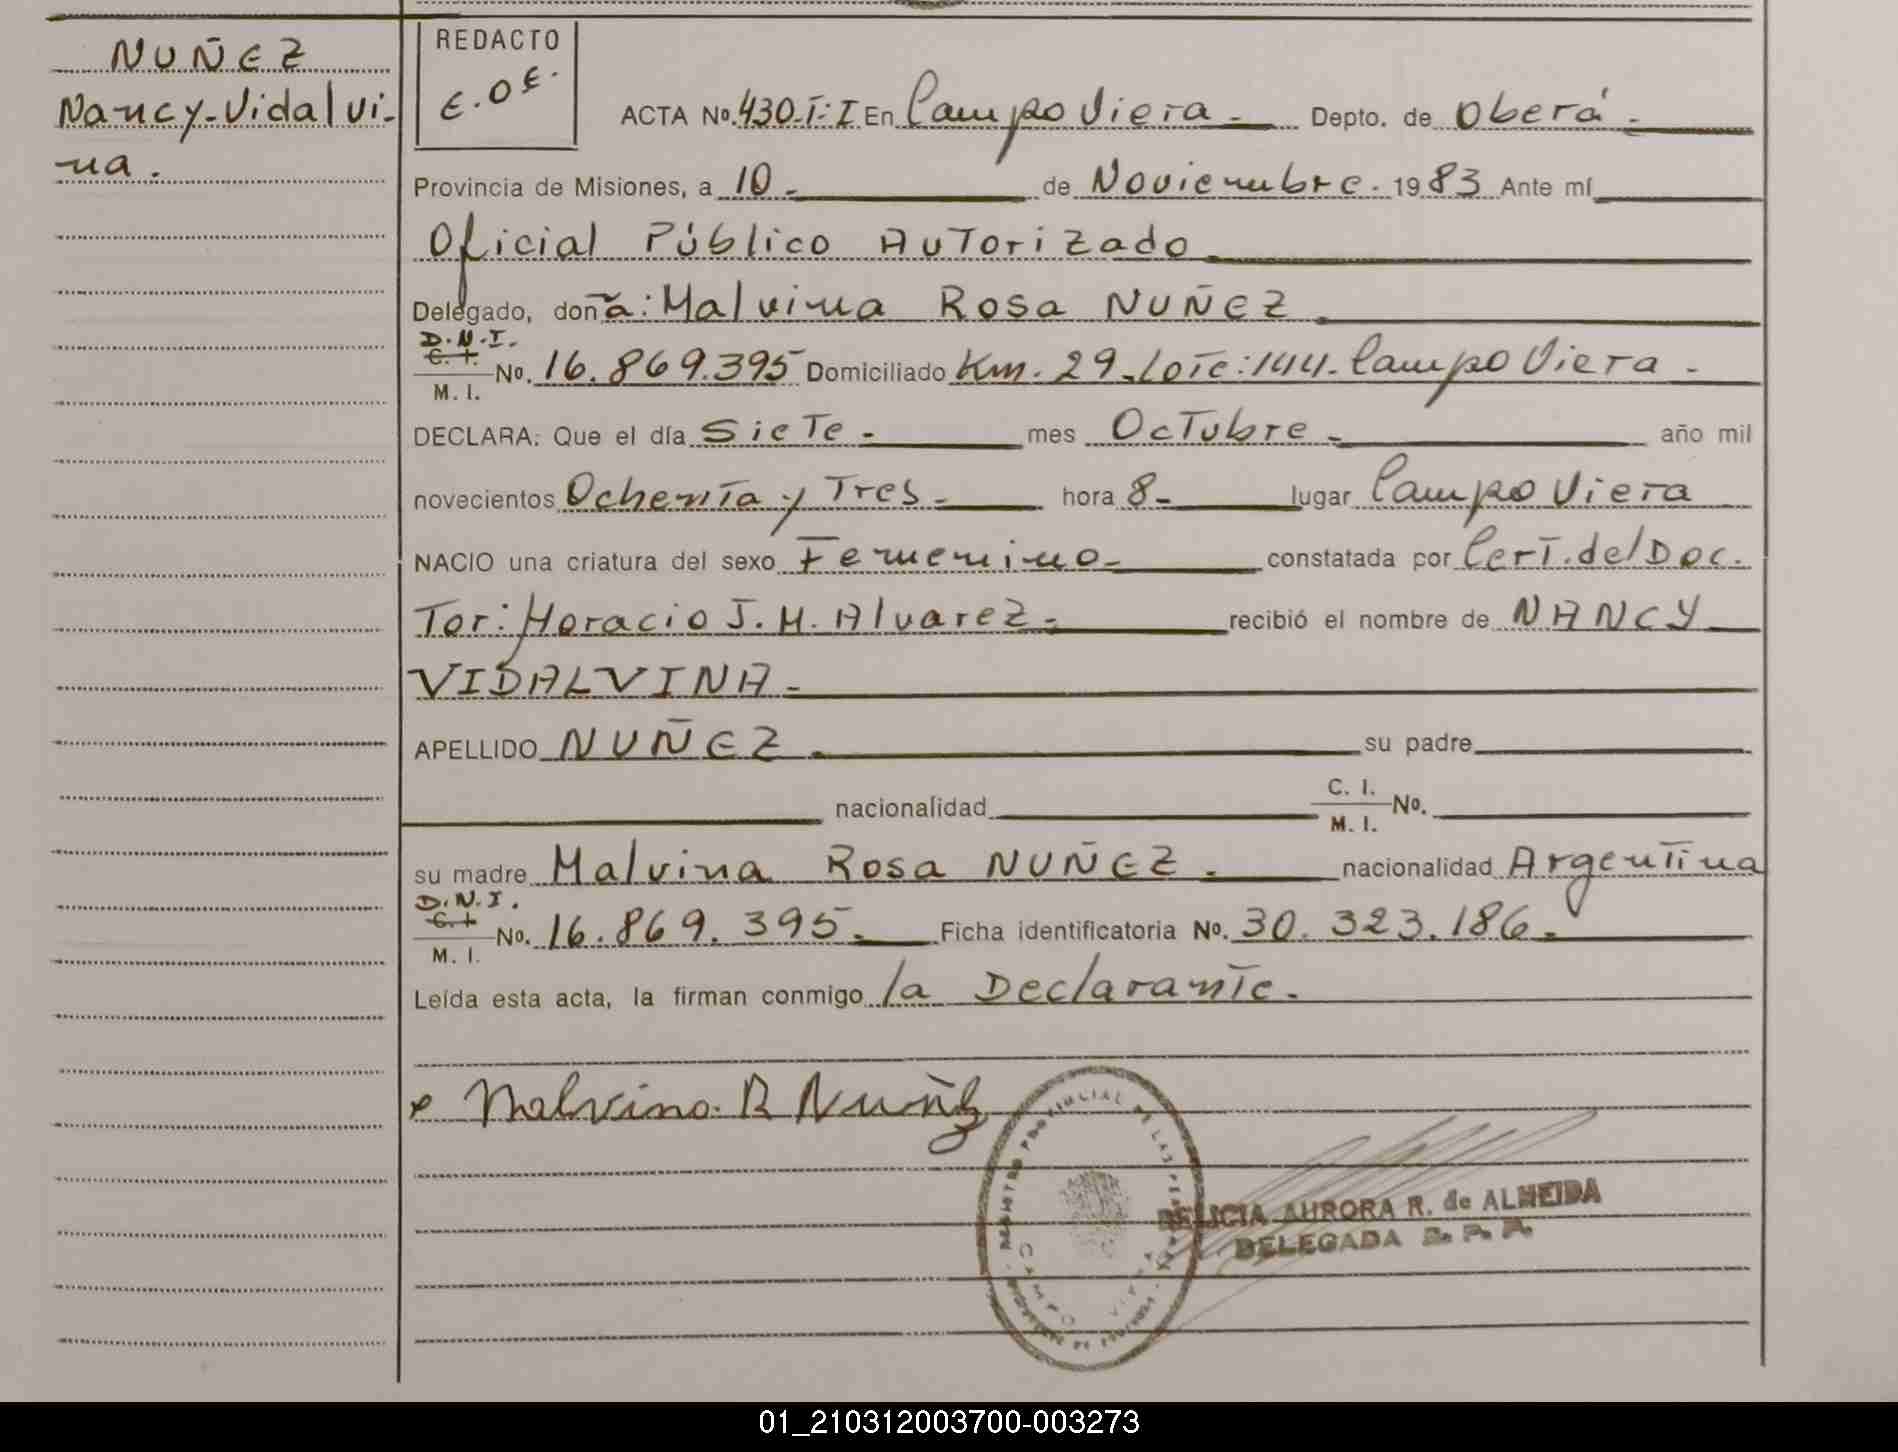 NUÑEZ
Nancy-Vidalvi-
na.
REDACTO
E.OE.
ACTA No. 430-T: I En Campo Viera - Depto. de Oberá -
Provincia de Misiones, a 10 - de Noviembre. 1983 Ante mí
Oficial Público Autorizado
Delegado, doña: Malvina Rosa NUÑEZ
D.N.I.
C. I.
M. I. No. 16.869.395 Domiciliado Km. 29-Lote: 144. Campo Viera -
DECLARA: Que el día Siete - mes Octubre - año mil
novecientos Ochenta y Tres - hora 8 - lugar Campo Viera
NACIO una criatura del sexo Femenino - constatada por Cert. del Doc.
Tor: Horacio J. M. Alvarez - recibió el nombre de NANCY
VIDALVINA -
APELLIDO NUÑEZ su padre
nacionalidad C. I. No.
M. I.
su madre Malvina Rosa NUÑEZ - nacionalidad Argentina
D.N.I.
C. I.
M. I. No. 16.869.395 - Ficha identificatoria No. 30.323.186 -
Leída esta acta, la firman conmigo la Declarante.
Malvina R Nuñez
REGISTRO PROVINCIAL DE LAS PERSONAS
CAMPO VIERA
DELICIA AURORA R. de ALMEIDA
DELEGADA R. P. P.
01_210312003700-003273